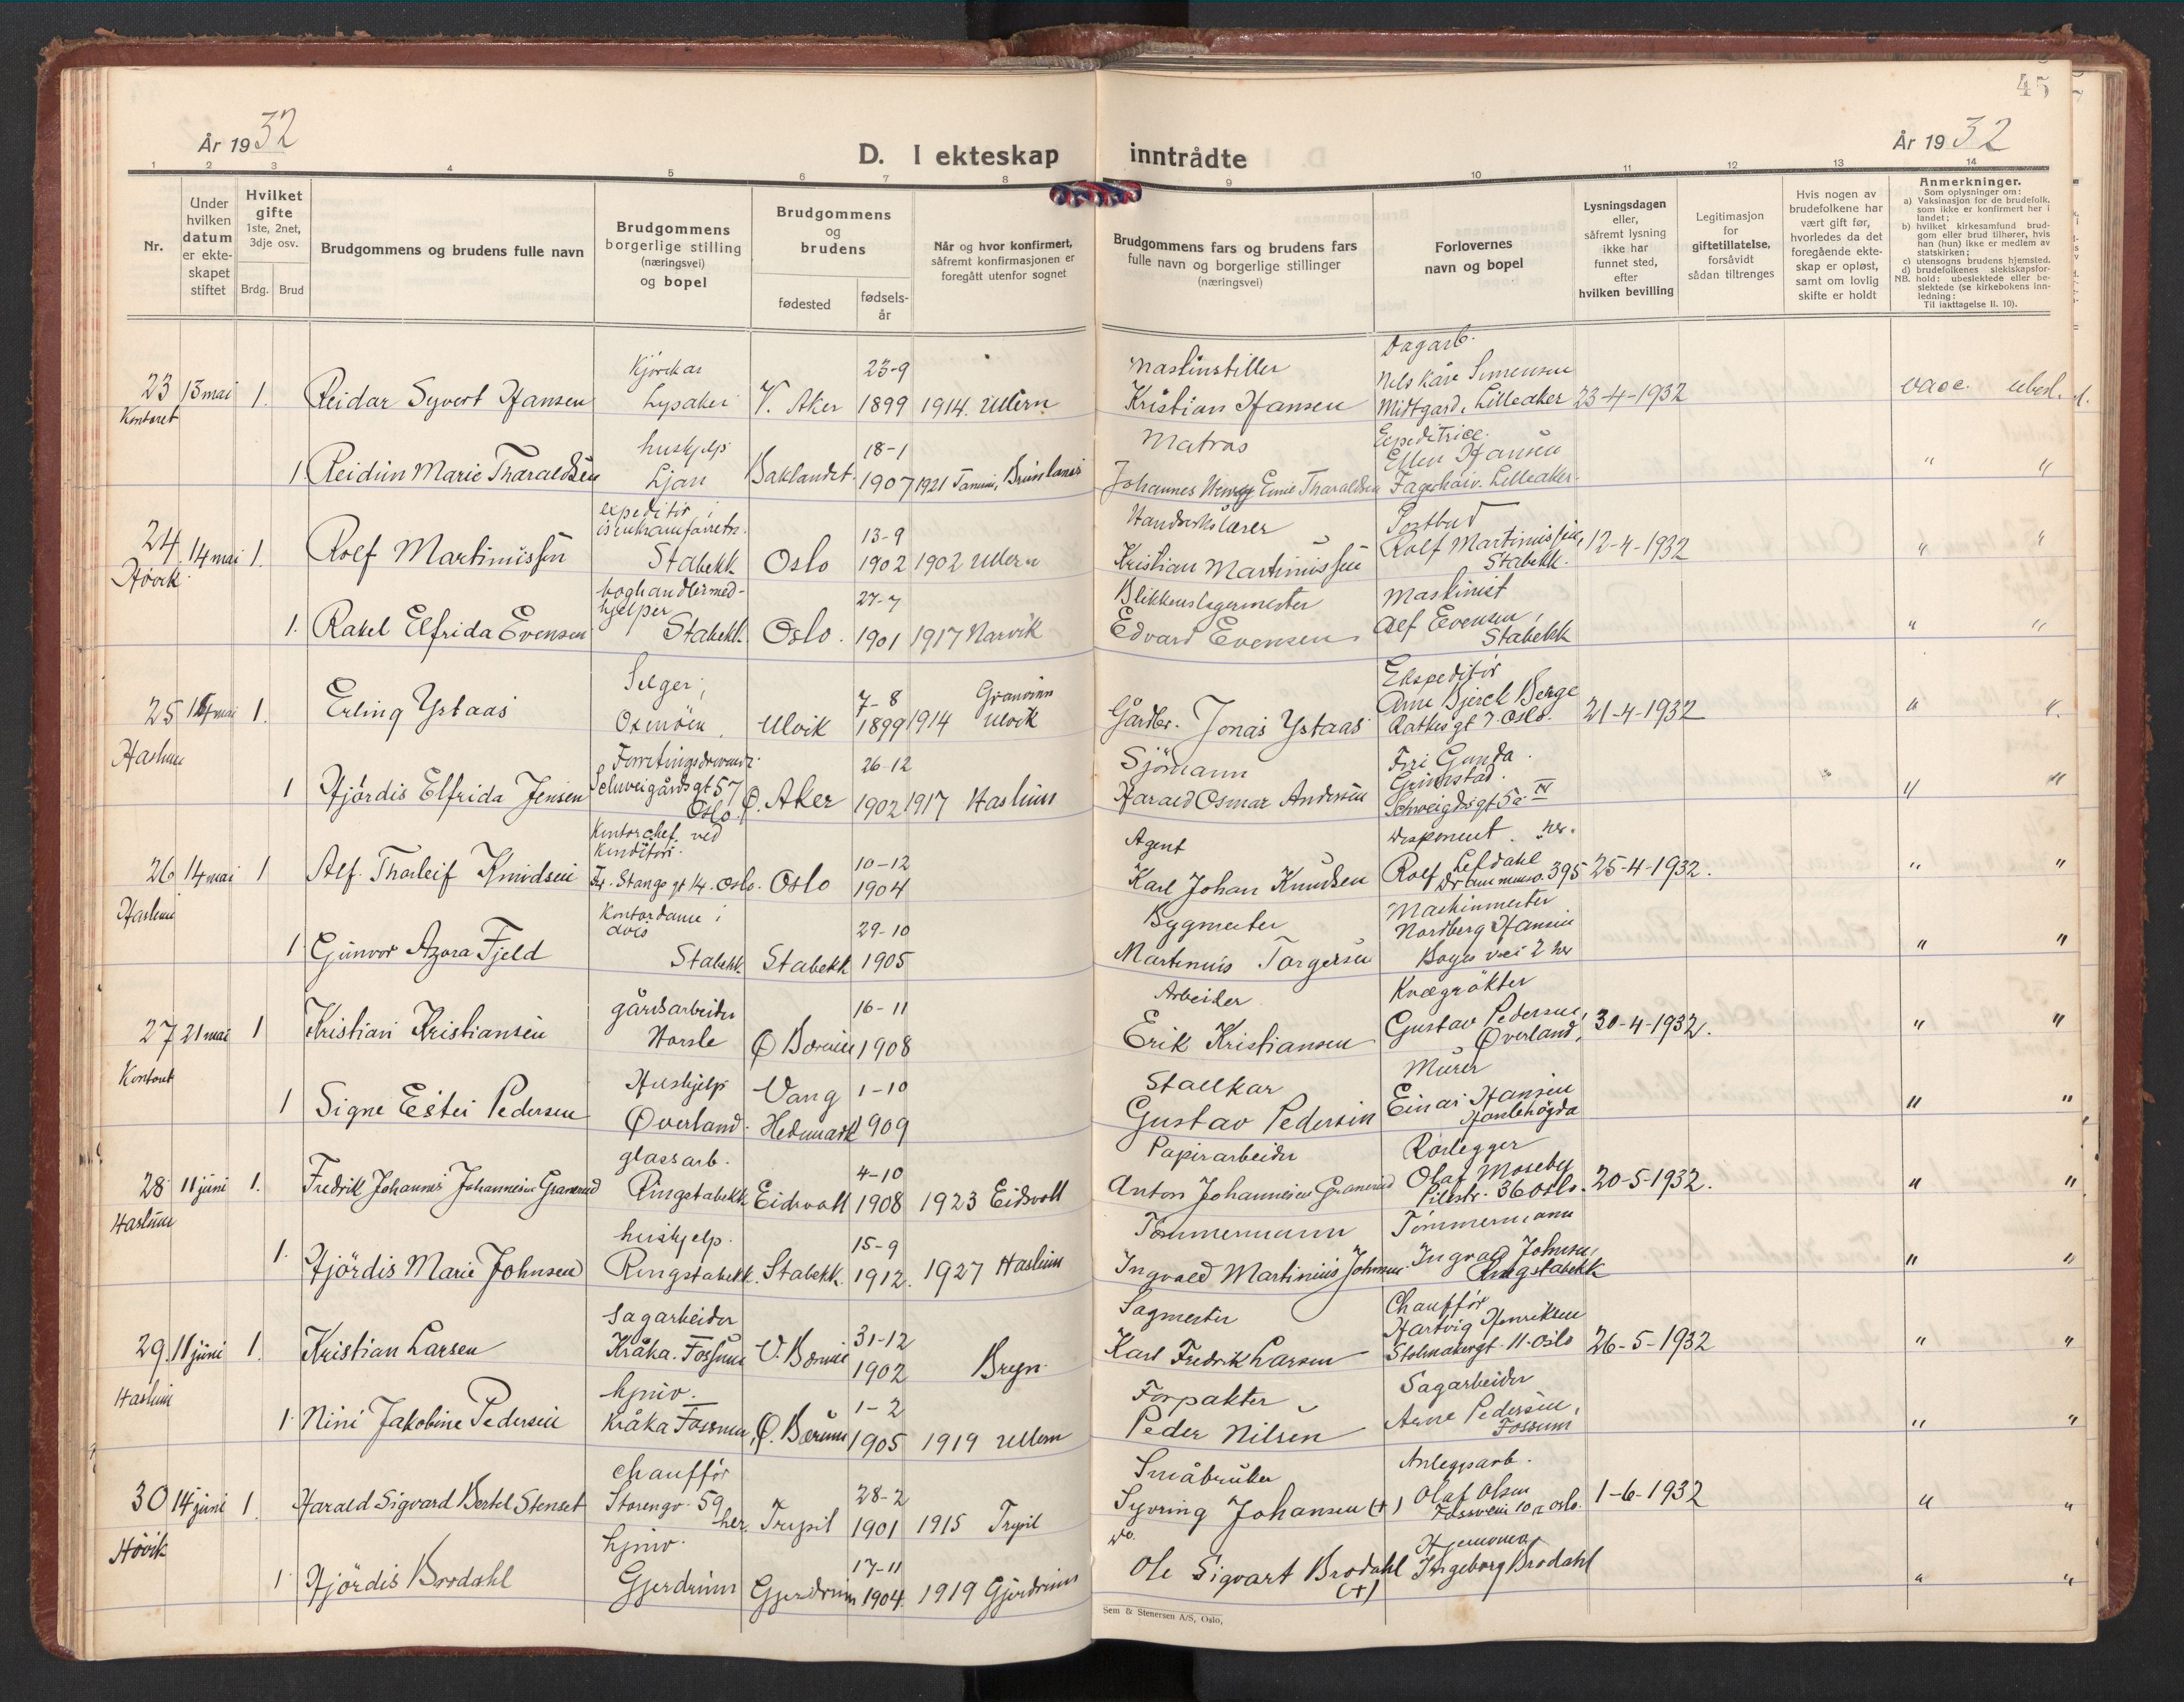 45
År 1932
D. I ekteskap inntrådte
År 1932
1 2 3 4 5 6 7 8 9 10 11 12 13 14
Nr.
Under hvilken datum er ekteskapet stiftet
Hvilket gifte 1ste, 2net, 3dje osv.
Brdg. Brud
Brudgommens og brudens fulle navn
Brudgommens borgerlige stilling (næringsvei) og bopel
Brudgommens og brudens
fødested
fødsels-år
Når og hvor konfirmert, såfremt konfirmasjonen er foregått utenfor sognet
Brudgommens fars og brudens fars fulle navn og borgerlige stillinger (næringsvei)
Forlovernes navn og bopel
Lysningsdagen eller, såfremt lysning ikke har funnet sted, efter hvilken bevilling
Legitimasjon for giftetillatelse, forsåvidt sådan tiltrenges
Hvis nogen av brudefolkene har vært gift før, hvorledes da det foregående ekteskap er opløst, samt om lovlig skifte er holdt
Anmerkninger.
Som oplysninger om:
a) Vaksinasjon for de brudefolk, som ikke er konfirmert her i landet;
b) hvilket kirkesamfund brudgom eller brud tilhører, hvis han (hun) ikke er medlem av statskirken;
c) utensogns brudens hjemsted.
d) brudefolkenes slektskapsforhold: ubeslektede eller beslektede (se kirkebokens innledning:
NB.
Til iakttagelse II. 10).
23 13 mai 1. Reidar Syvert Hansen Kjørekar Lysaker V. Aker 23-9 1899 1914. Ullern Maskinstiller Kristian Hansen Dagarb. Nils Kåre Simensen Midtgard, Lilleaker 23-4-1932 vacc. ubesl.
Kontoret
1 Reidun Marie Tharaldsen huskjelp Ljan Baklandet 18-1 1907 1921 Tanum, Brunlanes Matros Johannes Tharaldsen Expeditrice Ellen Hansen Lilleaker. " "
24 14 mai 1. Rolf Martinussen expeditør i Stabekk Oslo 13-9 1902 1902 Ullern Kristian Martinussen Postbud Rolf Martinussen, Stabekk. 12-4-1932 " "
Høvik
1. Rakel Elfrida Evensen boghandlermedhjelper Stabekk Oslo. 27-7 1901 1917 Narvik Blikkenslagermester Edvard Evensen Maskinist Alf Evensen, Stabekk " "
25 14 mai 1. Erling Ystaas Selger, Oksenøen Ulvik 7-8 1899 1914 Granvin Ulvik Gårdbr. Jonas Ystaas Ekspeditør Arne Bjerck Berge Rathkes gt 7. Oslo. 21-4-1932 " "
Haslum
1 Hjørdis Elfrida Jensen Schweigårdsgt 57 Oslo. Ø. Aker 26-12 1902 1917 Haslum Sjømann Harald Osmar Andersen Fri Gunda Grimstad. " "
26 14 mai 1 Alf Thorleif Knudsen Kontorchef ved Fr. Stangs gt 14. Oslo. Oslo 10-12 1904 Agent Karl Johan Knudsen Disponent Rolf Lefdahl 395 25-4-1932. " "
Haslum
1 Gunvor Azora Fjeld Kontordame i avis Stabekk Stabekk 29-10 1905 Bygmester Martinius Torgersen Maskinmester Nordberg Hansen vei 2 her " "
27 21 mai 1 Kristian Kristiansen gårdsarbeider Horsle Ø Bærum 16-11 1908 Arbeider Erik Kristiansen Kvægrøkter Gustav Pedersen, Øverland, 30-4-1932. " "
Kontoret
1 Signe Ester Pedersen Huskjelp Øverland. Vang Hedmark 1-10 1909 Stallkar Gustav Pedersen Murer Einar Hansen " "
28 11 juni 1. Fredrik Johannes Johannesen Granerud glassarb. Ringstabekk Eidsvoll 4-10 1908 1923 Eidsvoll Papirarbeider Anton Johannesen Granerud Rørlegger Olaf Moseby Pilestr. 36 Oslo. 20-5-1932. " "
Haslum
1. Hjørdis Marie Johnsen huskjelp. Ringstabekk. Stabekk. 15-9 1912. 1927 Haslum Tømmermann Ingvald Martinius Johnsen Tømmermann Ingvald Johnsen, Ringstabekk " "
29. 11 juni 1. Kristian Larsen Sagarbeider Kråka. Fossum V. Bærum 31-12 1902 Bryn Sagmester Karl Fredrik Larsen Chauffør Hartvig Henriksen Stolmakergt. 11 Oslo 26-5-1932 " "
Haslum
1. Nini Jakobine Pedersen hjmv. Kråka Fossum Ø. Bærum 1-2 1905 1919 Ullern Forpakter Peder Nilsen Sagarbeider Arne Pedersen, Fossum " "
30 14 juni 1. Harald Sigvard Bertel Stenset chauffør Storengv. 59 her. Trysil 28-2 1901 1915 Trysil Småbruker Syvring Johansen (+) Anleggsarb. Olaf Olsen Oslo. 1-6-1932 " "
Høvik
1 Hjørdis Brodahl hjmv. Gjerdrum Gjerdrum 17-11 1904. 1919 Gjerdrum do. Ole Sigvart Brodahl (+) Ingeborg Brodahl " "
Sem & Stenersen A/S, Oslo,